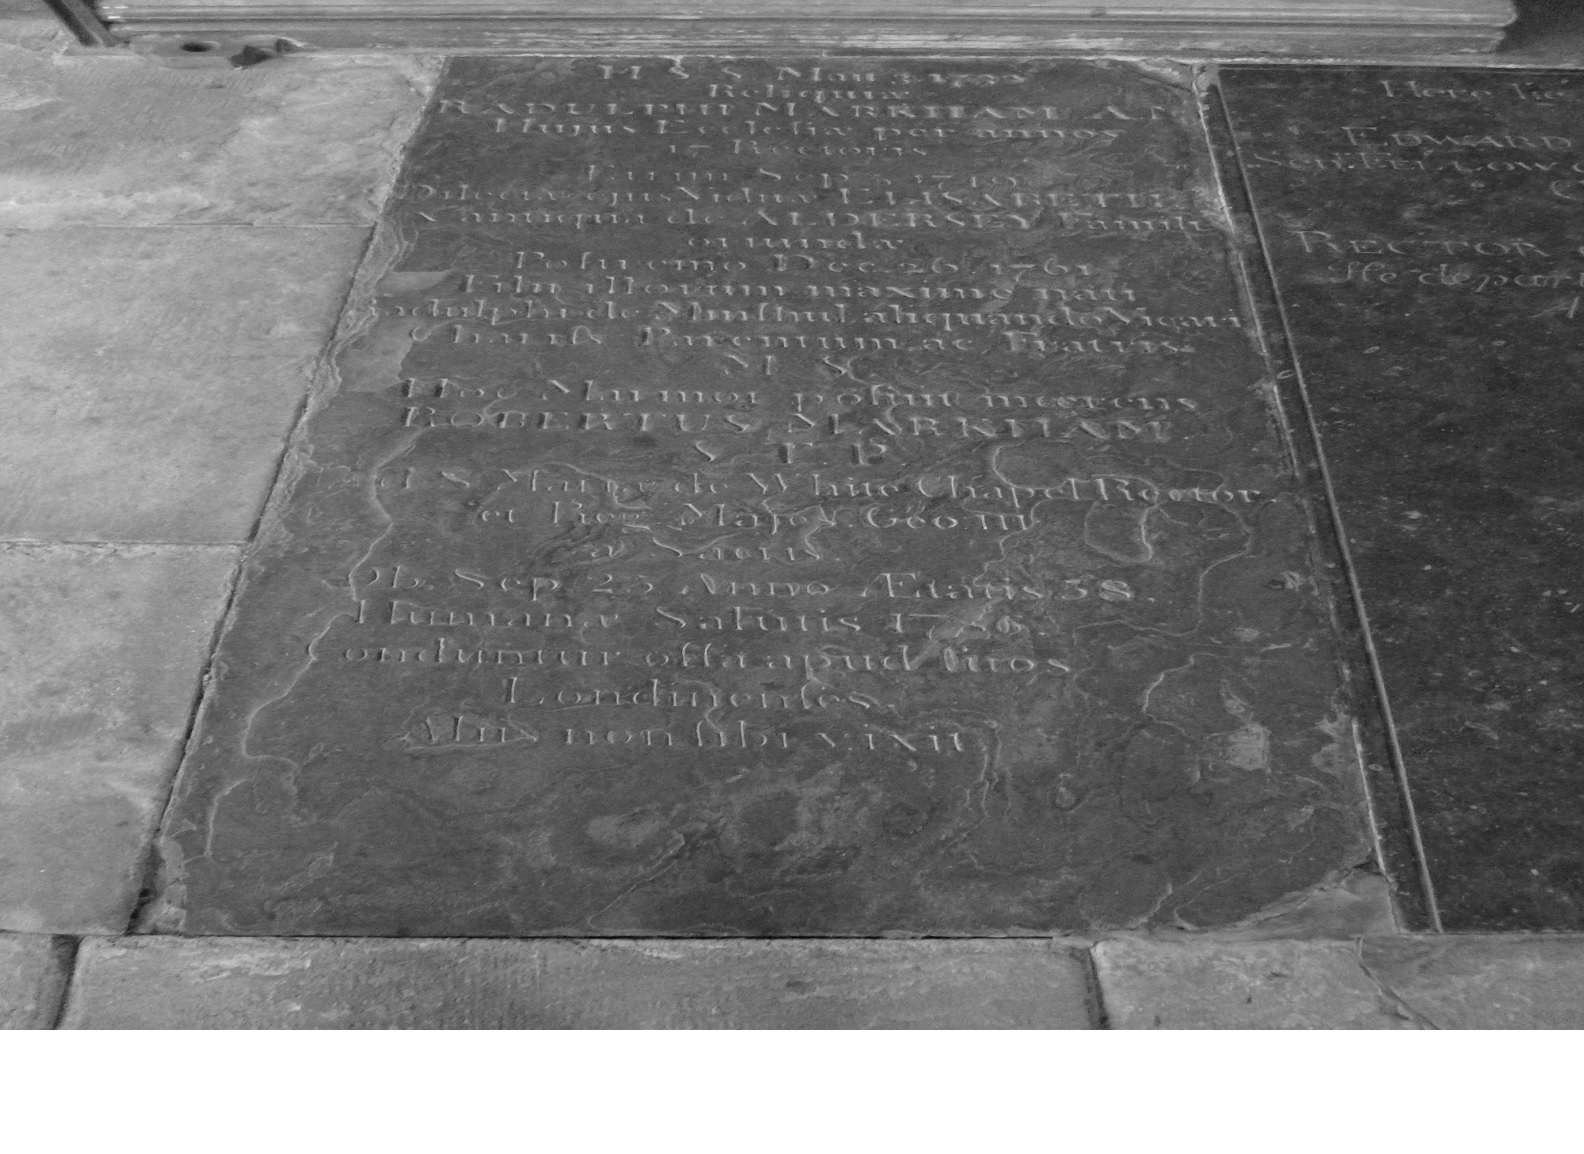 H S S Maii 3 1732
Reliquiæ
RADULPHI MARKHAM A
Hujus Ecclesiæ per annos
17 Rectoris
Sep. 1749
ejus Viduæ ELISABETHÆ
antiqua de ALDERSEY Famili
oriundæ
Posui Dec. 26. 1761
Filii illorum maxime nati
adulphi de Minshul aliquando Vicarii
Chariss Parentum ac Fratris
M S
Hoc Marmor posuit mœrens
ROBERTUS MARKHAM
S T P
ad S Mariæ de White Chapel Rector.
et Reg. Majes. Geo. III
a Sacris.
Ob. Sep 23 Anno Ætatis 58.
Humanæ Salutis 1786.
Conduntur ossa apud suos
Londinenses.
Aliis non sibi vixit
Here lie
EDWARD
Son. FELLOW
RECTOR
He depart